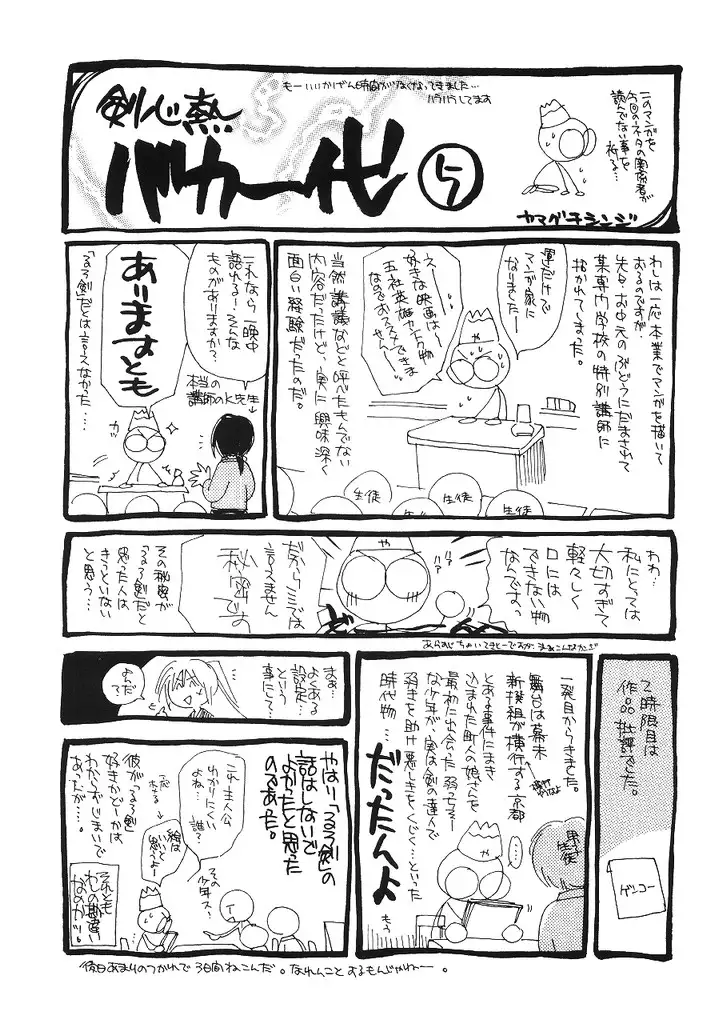 もーいいかげん時間がなくなってきました…
バラバラしてます
剣心熱
バカ一代
5
このマンガを
今回のネタの関係者が
読んでない事を
祈る…
ヤマグチシンジ
わしは一応本業でマンガを描いて
おるのですが、
先日お中元のぶどうにだまされて
某専門学校の特別講師に
おかれてしまった。
運だけで
マンガ家に
なりましたー
えー
好きな映画は〜
五社英雄
なのでおススメできま
せん〜
当然講議などと呼べたもんでない
内容だったけど、実に興味深く
面白い経験だったのだ。
や
生徒
生徒
生徒
これなら一晩中
語れるー!そんな
ものがありますか?
本当の
講師のK先生
ありますとも
ガッ
「るろ剣」だとは言えなかった…
わわ…
私にとっては
大切すぎて
軽々しく
口には
できない物
なんです。
や
だからココでは
言えません
秘密です
その秘密が
るろ剣だと
思った人は
きっといない
と思う…
あらすじちょいてきとーですが、まあこんなかんじ
2時限目は
作品批評でした。
ゲンコー
一発目からきました。
舞台は幕末
新撲組が横行する京都
とある事件にまき
込まれた町人の娘さんを
最初に出会った弱っちそー
な少年が、実は剣の達人で
弱きを助け悪しきをくじく…といった
時代物…
だったんよ
もう
男子
生徒
……
や
まぁ…
よくある
設定…
という
事にして…
よっ
だ
やはり「るろ剣」の
話はしないで
よかったと思った
のであった。
この主人公
わかりにくい
よね…
誰?
絵は
いいと
思うよー
その
少年ス!
彼が「るろ剣」
好きかどーかは
わからずじまいで
あったが…。
それとも
わしの勘違い
なのかっ。
後日あまりのつかれで3日間ねこんだ。なれんことするもんじゃねー。